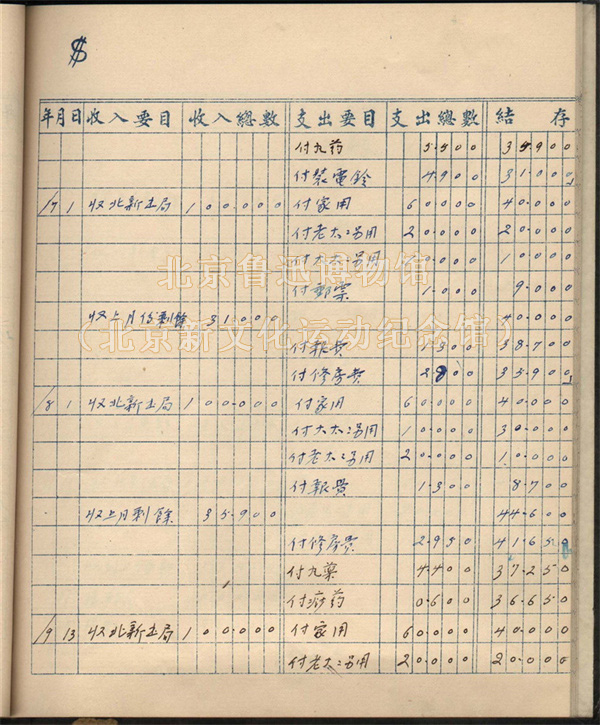 $
年 月 日 收入要目 收入總數 支出要目 支出總數 結存
付丸药 5.400 35.900
付裝電鈴 4.900 31.000
/7 1 收北新书局 100.000 付家用 60.000 40.000
付老太太另用 20.000 20.000
付大太太另用 10.000 10.000
付郵票 1.000 9.000
收上月份剩餘 31.000 40.000
付報費 1.300 38.700
付修房费 2.800 35.900
/8 1 收北新书局 100.000 付家用 60.000 40.000
付大太太另用 10.000 30.000
付老太太另用 20.000 10.000
付報費 1.300 8.700
收上月剩餘 35.900 44.600
付修房費 2.950 41.650
付丸藥 4.400 37.250
付痧药 0.600 36.650
/9 13 收北新书局 100.000 付家用 60.000 40.000
付老太太另用 20.000 20.000
北京鲁迅博物馆
（北京新文化运动纪念馆）